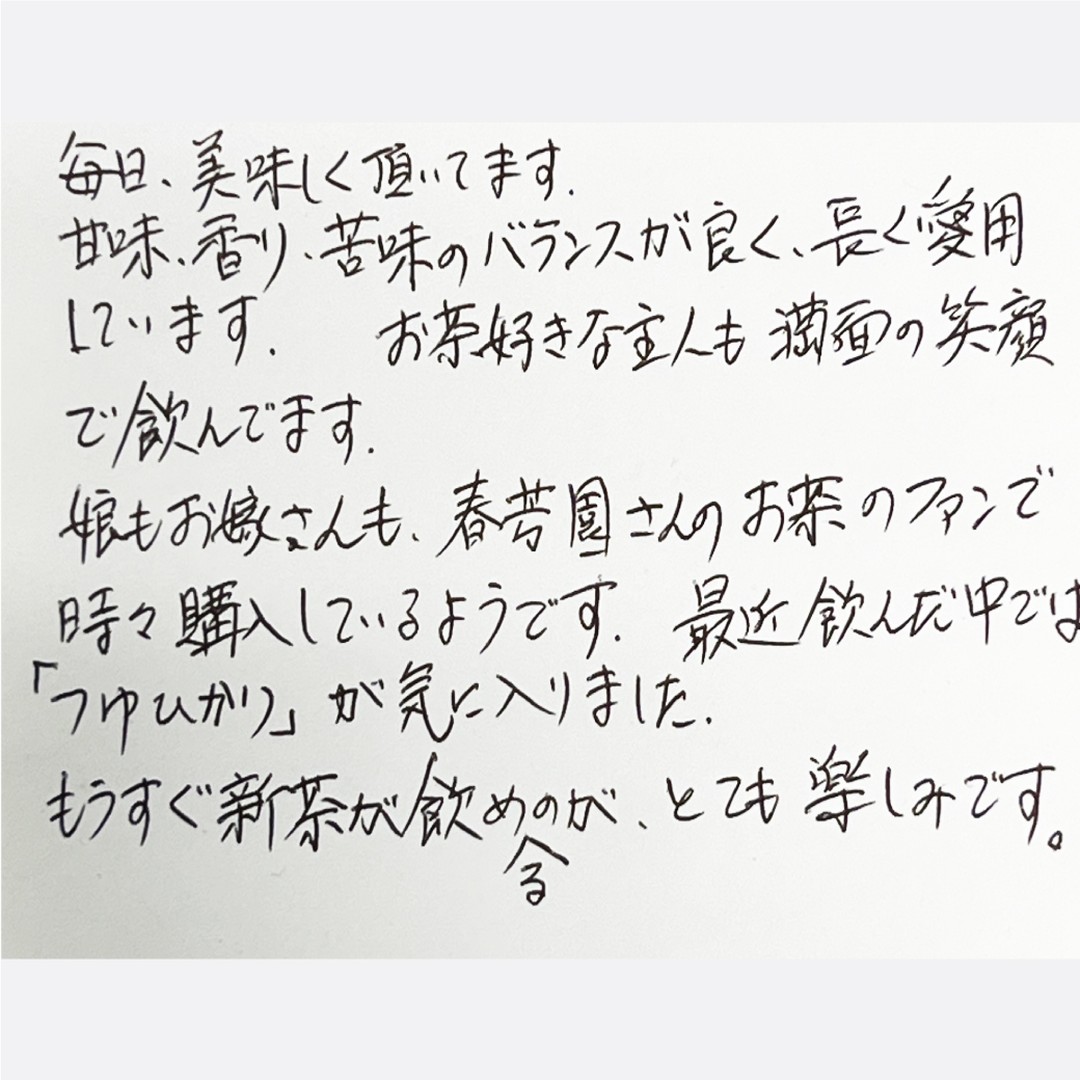 毎日、美味しく頂いてます.
甘味、香り、苦味のバランスが良く、長く愛用
しています. お茶好きな主人も満面の笑顔
で飲んでます.
娘もお嫁さんも、春芳園さんのお茶のファンで
時々購入しているようです. 最近飲んだ中では
「つゆひかり」が気に入りました.
もうすぐ新茶が飲めるのが、とても楽しみです。